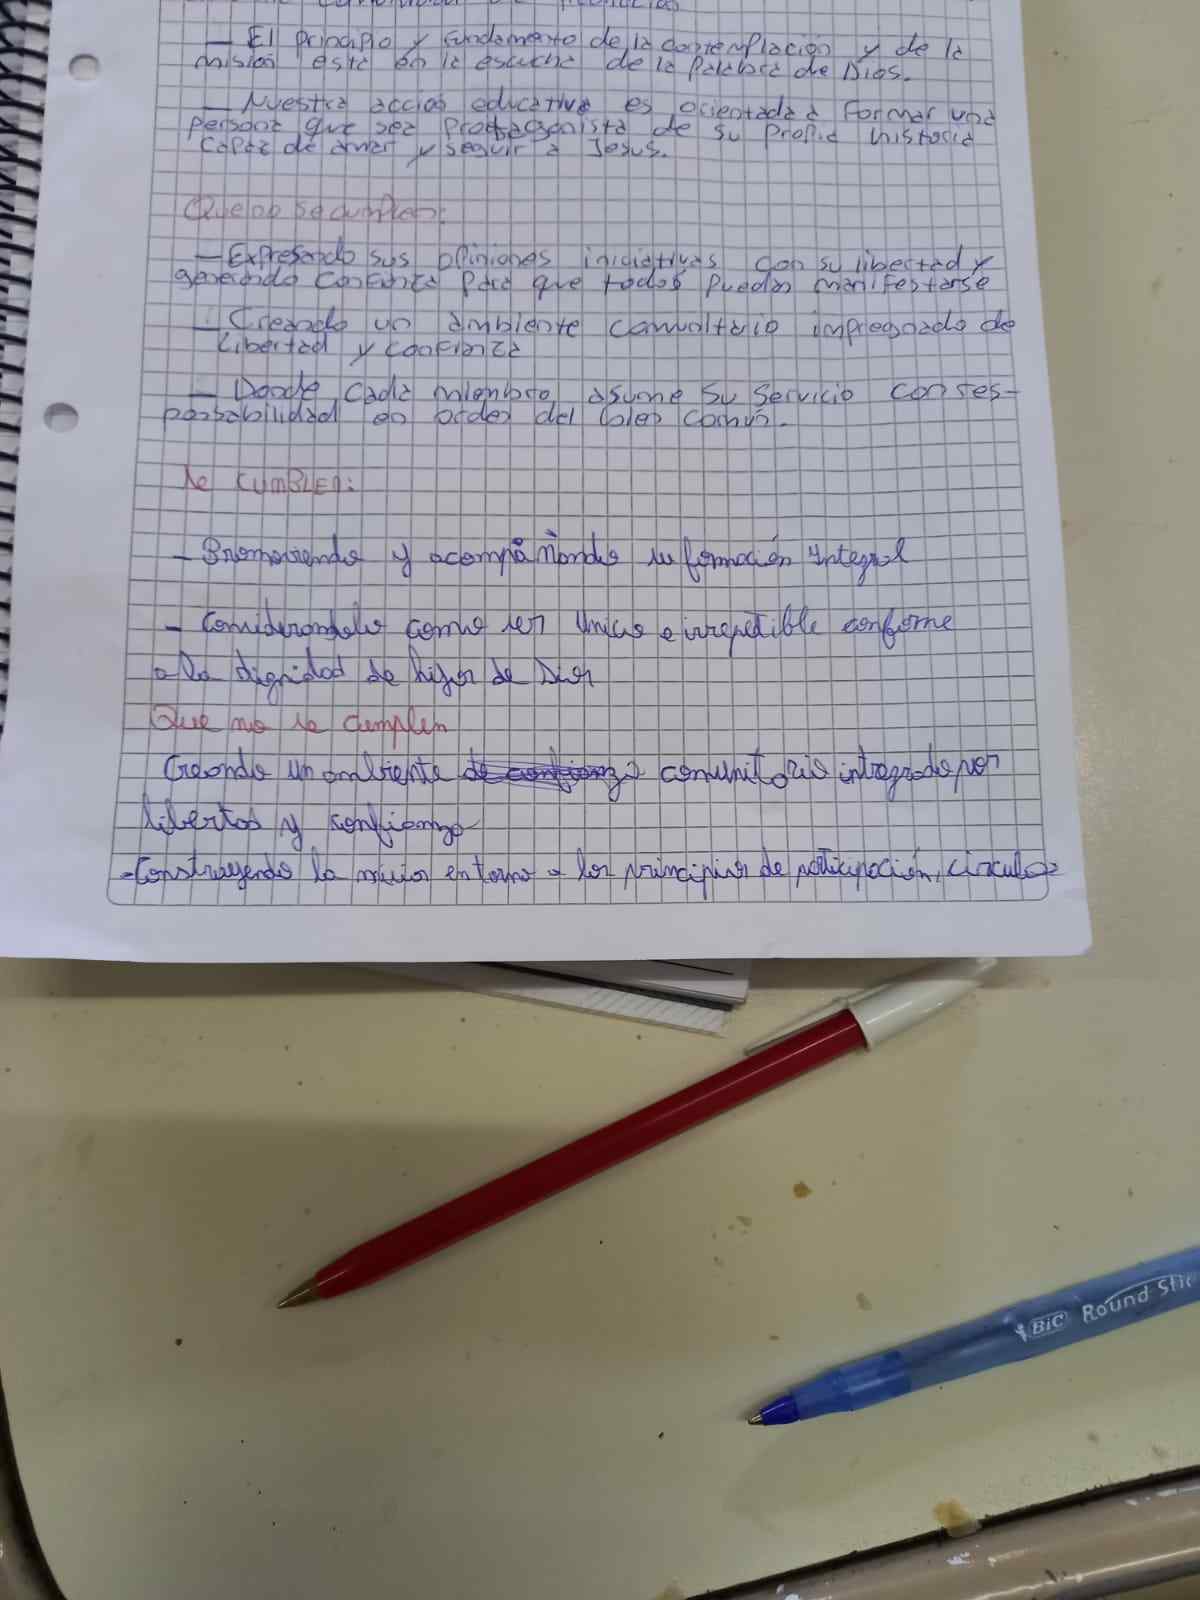 - El principio y fundamento de la contemplación y de la
misión está en la escucha de la Palabra de Dios.
- Nuestra acción educativa es orientada a formar una
persona que sea protagonista de su propia historia
capaz de amar y seguir a Jesus.
Que no se cumplen:
- Expresando sus opiniones iniciativas con su libertad y
generando confianza para que todos puedan manifestarse
- Creando un ambiente comunitario impregnado de
libertad y confianza
- Donde cada miembro asume su servicio con res-
ponsabilidad en orden del bien común.
Se cumplen:
- Promoviendo y acompañando su formación integral
- Considerandolo como ser único e irrepetible conforme
a la dignidad de hijos de Dios
Que no se cumplen
Creando un ambiente comunitario integrado por
libertad y confianza
- Construyendo la misión entorno a los principios de participación, circulos
BIC Round Stic